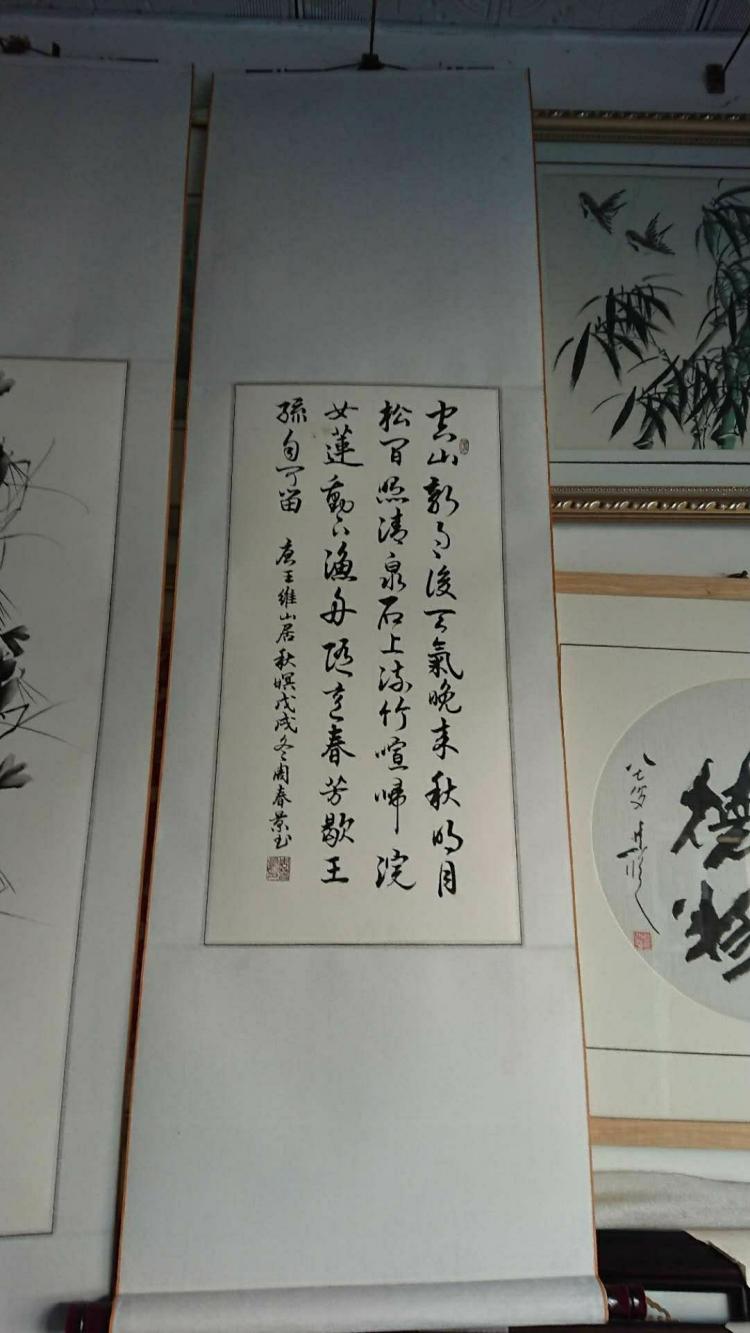 空山新雨後天氣晚来秋明月
松间照清泉石上流竹喧歸浣
女蓮動下漁舟隨意春芳歇王
孫自可留 唐王維山居秋暝戊戌冬周春景书
八七叟